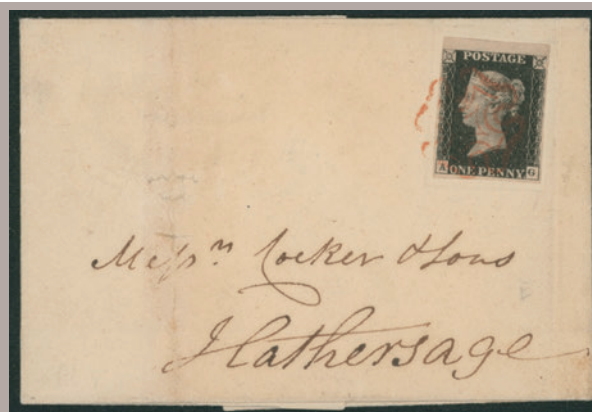 POSTAGE
A ONE PENNY G
Messrs. Cocker & Sons
Hathersage